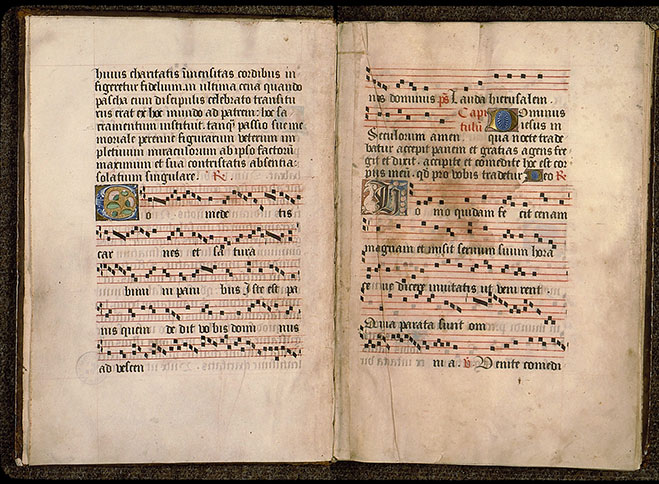 huius charitatis īmensitas cordibus in
figeretur fidelium. in ultima cena quando
pascha cum discipulis celebrato transitu
rus erat ex hoc mundo ad patrem: hoc sa
cramentum instituit. tanq̄ passiõ sue me
moriale perenne figurarum veterum im
pletiuum miraculorum ab ipso factorũ
maximum et suā contristatis absentia
solatium singulare. ℟.
Co mede tis
car nes et sa tura
bimi ni pani bus Iste est pa
nis quem de dit vobis domi nus
ad vescen
nis dominus p̄s Lauda hierusalem.
Capi Dominus
tulū iesus in
Seculorum amen qua nocte trade
batur accepit panem et gratias agens fre
git et dixit. accipite et comedite hoc est cor
pus meū. qd̄ pro vobis tradetur Deo ℟
Ho mo quidam fe cit cenam
magnam et misit seruum suum hora
ce ne dicere inuitatis ut veni rent.
Quia parata sunt om
ni a. ℣. Venite comedi